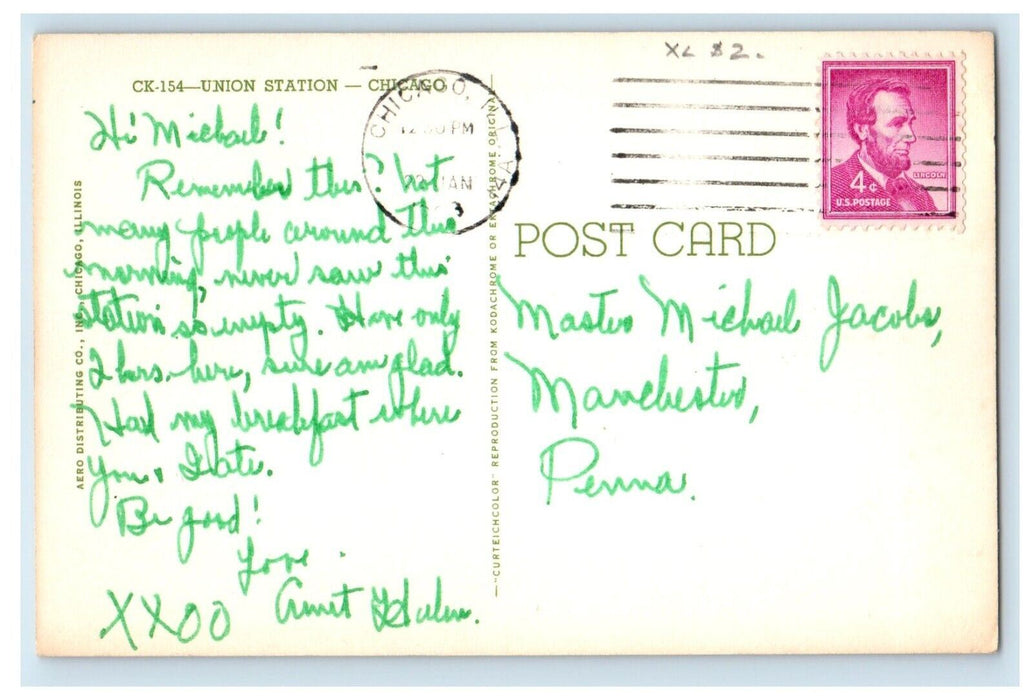 XL $2.
CK-154—UNION STATION — CHICAGO
CHICAGO, ILL.
PM
JAN
4¢
LINCOLN
U.S. POSTAGE
POST CARD
Hi Michael!
Remember this? Not
many people around this
morning, never saw this
station so empty. Have only
2 hrs. here, sure am glad.
Had my breakfast where
you & I ate.
Be good!
Love
Aunt Helen.
XXOO
Master Michael Jacobs,
Manchester,
Penna.
AERO DISTRIBUTING CO., INC., CHICAGO, ILLINOIS
—"CURTEICHCOLOR" REPRODUCTION FROM KODACHROME OR EKTACHROME ORIGINAL